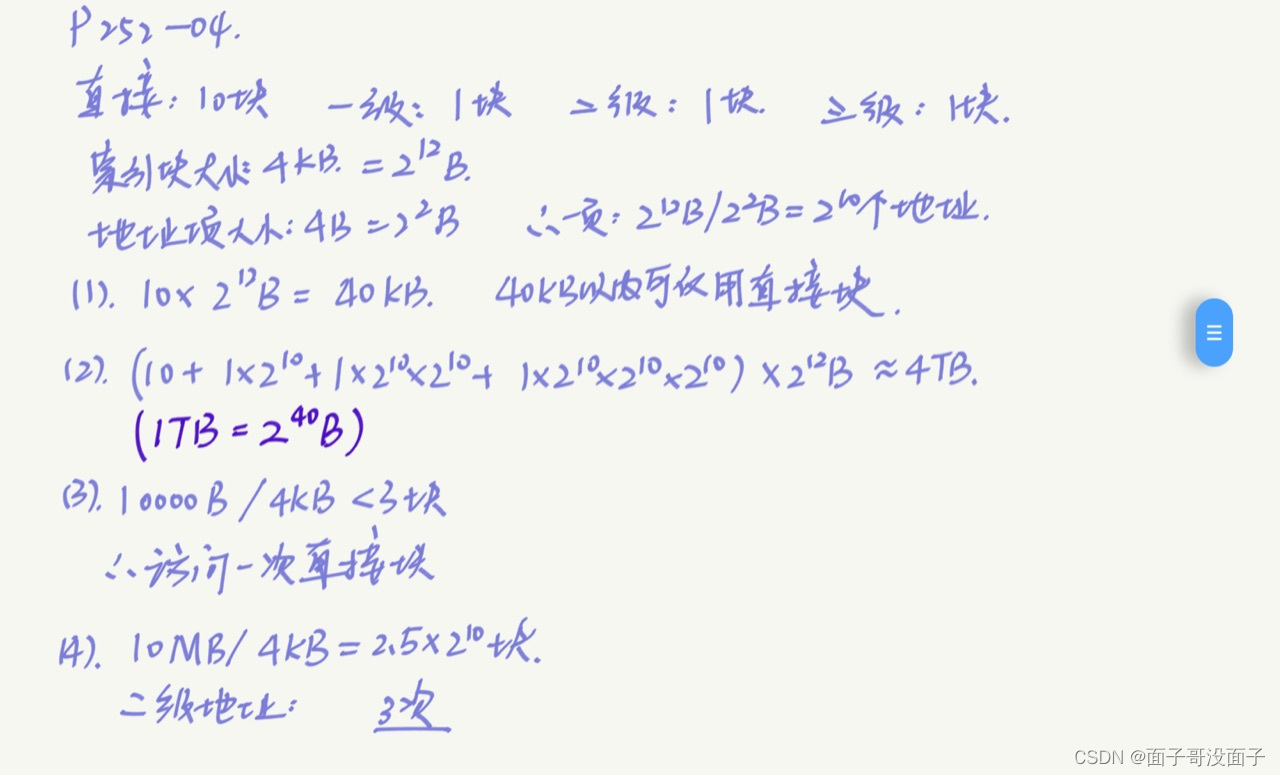 P252-04.
直接：10块 一级：1块 二级：1块. 三级：1块.
索引块大小：4KB. = 2^12 B.
地址项大小：4B = 2^2 B ∴一页：2^12B/2^2B = 2^10个地址.
(1). 10× 2^12B = 40KB. 40KB以内可仅用直接块.
(2). (10 + 1×2^10 + 1×2^10×2^10 + 1×2^10×2^10×2^10) × 2^12B ≈ 4TB.
(1TB = 2^40B)
(3). 10000B / 4KB < 3块
∴访问一次直接块
(4). 10MB / 4KB = 2.5×2^10块.
二级地址： 3次
CSDN @面子哥没面子